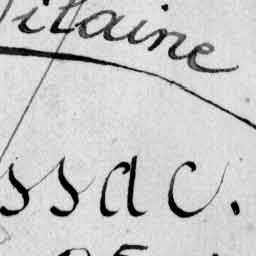 itaine
ssac.